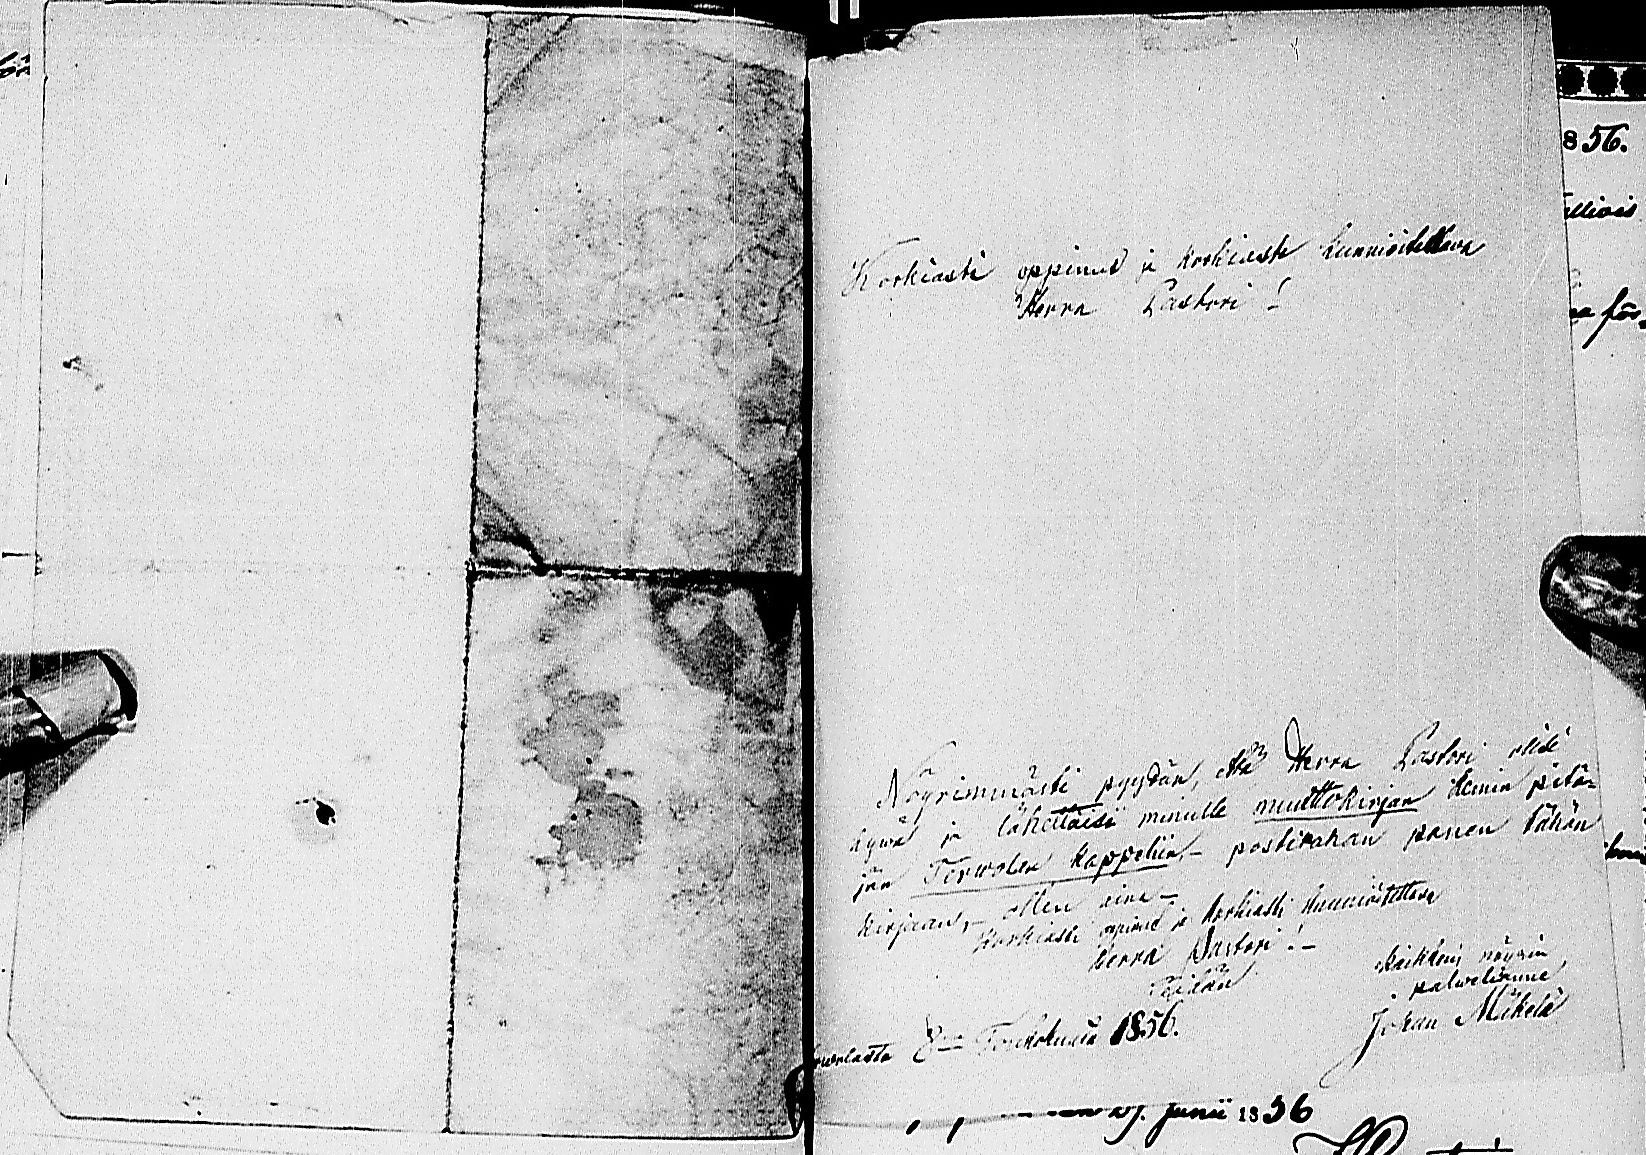 Korkiasti oppinut ja korkiasti kunnioitettava
Herra Pastori!
Nöyrimmästi pyydän, että Herra Pastori olisi
hywä ja lähettäisi minulle muuttokirjan Kemin pitä-
jän Terwolan kappeliin, – postirahan panen tähän
kirjaan, – ollen aina –
Korkiasti oppinut ja korkiasti kunnioitettava
Herra Pastori! –
Teidän
kaikkein nöyrin
palwelianne,
Johan Mikelä
8 Toukokuuta 1856.
27. Junii 1856
856.
för